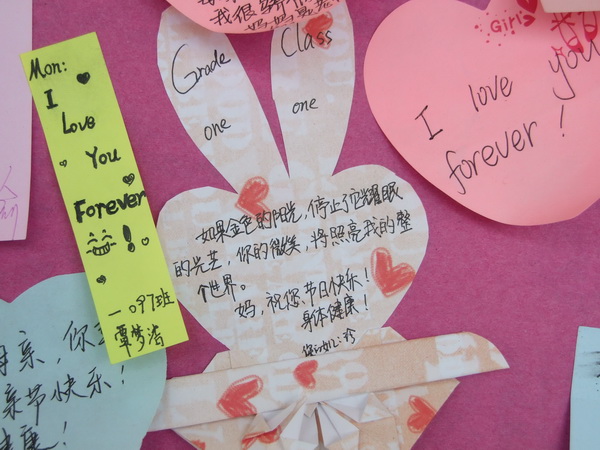 我很
妈妈
Grade
one
Class
one
如果金色的阳光，停止了它耀眼
的光芒，你的微笑，将照亮我的整
个世界。
妈，祝您节日快乐！
身体健康！
Mon:
I
Love
You
Forever
!
一097班
覃梦涛
Girl
I love you
forever!
亲，你
亲节快乐！
健康！